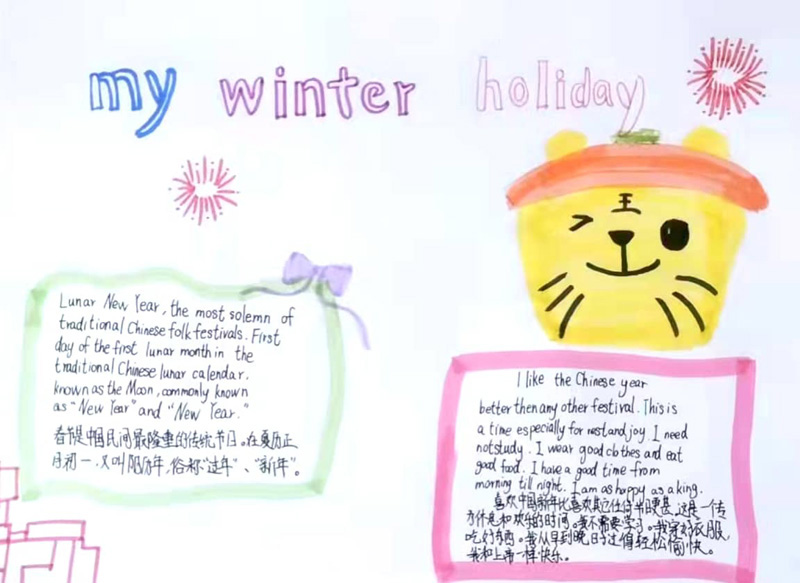 my winter holiday
王
Lunar New Year, the most solemn of
traditional Chinese folk festivals. First
day of the first lunar month in the
traditional Chinese lunar calendar.
known as the Moon, commonly known
as "New Year" and "New Year."
春节是中国民间最隆重的传统节日。在夏历正
月初一，又叫阴历年，俗称“过年”、“新年”。
I like the Chinese year
better then any other festival. This is
a time especially for restand joy. I need
notstudy. I wear good clothes and eat
good food. I have a good time from
morning till night. I am as happy as a king.
喜欢中国新年比喜欢其它任何节日更甚，这是一
为休息和欢乐的时间。我不需要学习。我穿好衣服，
吃好东西。我从早到晚日时过得轻松愉快。
我和上帝一样快乐。